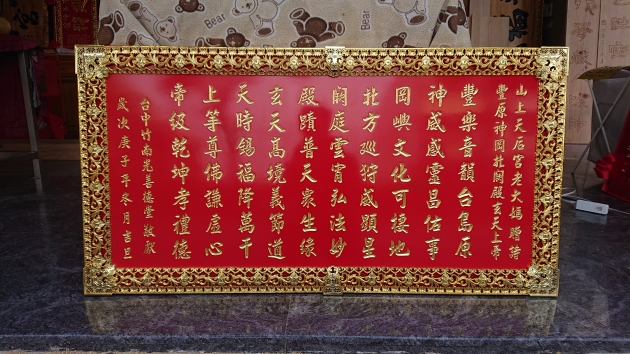 山上天后宮老大媽賜詩
豐原神岡北闕殿玄天上帝
豐樂音韻台島原
神威感靈昌佑事
岡嶼文化可棲地
北方巡狩威顯星
闕庭雲霄弘法妙
殿蹟普天眾生緣
玄天高境義節道
天時錫福降萬千
上等尊佛謙虛心
帝級乾坤孝禮德
台中竹南光善德堂敬獻
歲次庚子年冬月吉旦
Bear
Bear